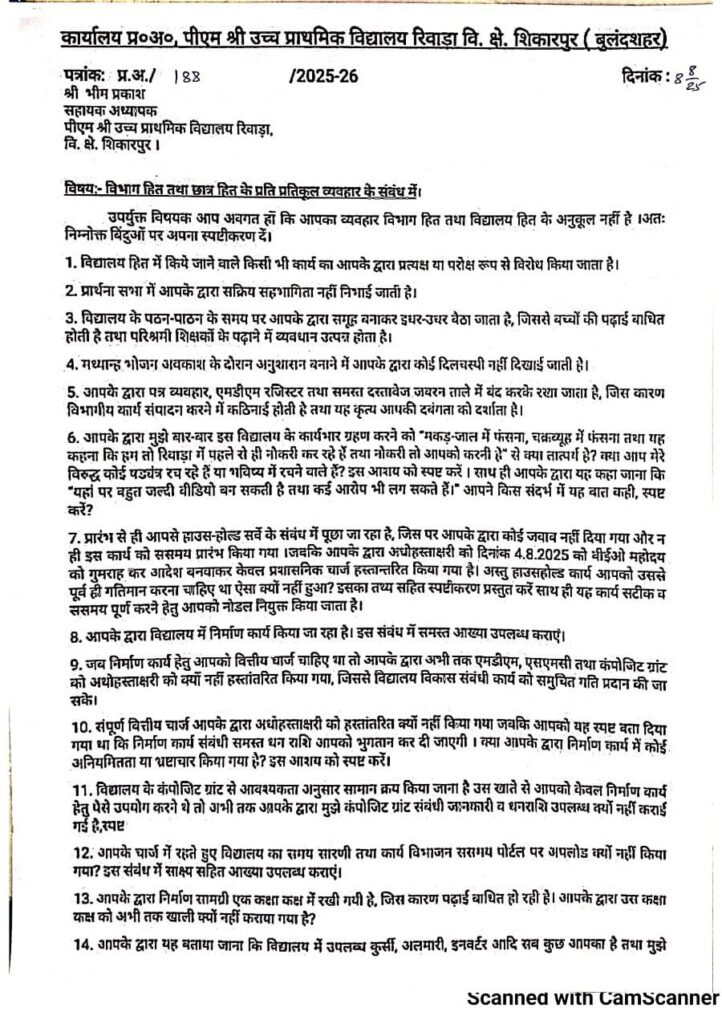 कार्यालय प्र०अ०, पीएम श्री उच्च प्राथमिक विद्यालय रिवाड़ा वि. क्षे. शिकारपुर ( बुलंदशहर)
पत्रांक: प्र.अ./ 188 /2025-26 दिनांक : 8 8/25
श्री भीम प्रकाश
सहायक अध्यापक
पीएम श्री उच्च प्राथमिक विद्यालय रिवाड़ा,
वि. क्षे. शिकारपुर ।
विषय:- विभाग हित तथा छात्र हित के प्रति प्रतिकूल व्यवहार के संबंध में।
उपर्युक्त विषयक आप अवगत हों कि आपका व्यवहार विभाग हित तथा विद्यालय हित के अनुकूल नहीं है ।अतः
निम्नोक्त बिंदुओं पर अपना स्पष्टीकरण दें।
1. विद्यालय हित में किये जाने वाले किसी भी कार्य का आपके द्वारा प्रत्यक्ष या परोक्ष रूप से विरोध किया जाता है।
2. प्रार्थना सभा में आपके द्वारा सक्रिय सहभागिता नहीं निभाई जाती है।
3. विद्यालय के पठन-पाठन के समय पर आपके द्वारा समूह बनाकर इधर-उधर बैठा जाता है, जिससे बच्चों की पढ़ाई बाधित
होती है तथा परिश्रमी शिक्षकों के पढ़ाने में व्यवधान उत्पन्न होता है।
4. मध्यान्ह भोजन अवकाश के दौरान अनुशासन बनाने में आपके द्वारा कोई दिलचस्पी नहीं दिखाई जाती है।
5. आपके द्वारा पत्र व्यवहार, एमडीएम रजिस्टर तथा समस्त दस्तावेज जबरन ताले में बंद करके रखा जाता है, जिस कारण
विभागीय कार्य संपादन करने में कठिनाई होती है तथा यह कृत्य आपकी दबंगता को दर्शाता है।
6. आपके द्वारा मुझे बार-बार इस विद्यालय के कार्यभार ग्रहण करने को "मकड़-जाल में फंसना, चक्रव्यूह में फंसना तथा यह
कहना कि हम तो रिवाड़ा में पहले से ही नौकरी कर रहे हैं तथा नौकरी तो आपको करनी है" से क्या तात्पर्य है? क्या आप मेरे
विरुद्ध कोई षडयंत्र रच रहे हैं या भविष्य में रचने वाले हैं? इस आशय को स्पष्ट करें । साथ ही आपके द्वारा यह कहा जाना कि
"यहां पर बहुत जल्दी वीडियो बन सकती है तथा कई आरोप भी लग सकते हैं।" आपने किस संदर्भ में यह बात कही, स्पष्ट
करें?
7. प्रारंभ से ही आपसे हाउस-होल्ड सर्वे के संबंध में पूछा जा रहा है, जिस पर आपके द्वारा कोई जवाब नहीं दिया गया और न
ही इस कार्य को ससमय प्रारंभ किया गया ।जबकि आपके द्वारा अधोहस्ताक्षरी को दिनांक 4.8.2025 को बीईओ महोदय
को गुमराह कर आदेश बनवाकर केवल प्रशासनिक चार्ज हस्तान्तरित किया गया है। अस्तु हाउसहोल्ड कार्य आपको उससे
पूर्व ही गतिमान करना चाहिए था ऐसा क्यों नहीं हुआ? इसका तथ्य सहित स्पष्टीकरण प्रस्तुत करें साथ ही यह कार्य सटीक व
ससमय पूर्ण करने हेतु आपको नोडल नियुक्त किया जाता है।
8. आपके द्वारा विद्यालय में निर्माण कार्य किया जा रहा है। इस संबंध में समस्त आख्या उपलब्ध कराएं।
9. जब निर्माण कार्य हेतु आपको वित्तीय चार्ज चाहिए था तो आपके द्वारा अभी तक एमडीएम, एसएमसी तथा कंपोजिट ग्रांट
को अधोहस्ताक्षरी को क्यों नहीं हस्तांतरित किया गया, जिससे विद्यालय विकास संबंधी कार्य को समुचित गति प्रदान की जा
सके।
10. संपूर्ण वित्तीय चार्ज आपके द्वारा अधोहस्ताक्षरी को हस्तांतरित क्यों नहीं किया गया जबकि आपको यह स्पष्ट बता दिया
गया था कि निर्माण कार्य संबंधी समस्त धन राशि आपको भुगतान कर दी जाएगी । क्या आपके द्वारा निर्माण कार्य में कोई
अनियमितता या भ्रष्टाचार किया गया है? इस आशय को स्पष्ट करें।
11. विद्यालय के कंपोजिट ग्रांट से आवश्यकता अनुसार सामान क्रय किया जाना है उस खाते से आपको केवल निर्माण कार्य
हेतु पैसे उपयोग करने थे तो अभी तक आपके द्वारा मुझे कंपोजिट ग्रांट संबंधी जानकारी व धनराशि उपलब्ध क्यों नहीं कराई
गई है,स्पष्ट
12. आपके चार्ज में रहते हुए विद्यालय का समय सारणी तथा कार्य विभाजन ससमय पोर्टल पर अपलोड क्यों नहीं किया
गया? इस संबंध में साक्ष्य सहित आख्या उपलब्ध कराएं।
13. आपके द्वारा निर्माण सामग्री एक कक्षा कक्ष में रखी गयी है, जिस कारण पढ़ाई बाधित हो रही है। आपके द्वारा उस कक्षा
कक्ष को अभी तक खाली क्यों नहीं कराया गया है?
14. आपके द्वारा यह बताया जाना कि विद्यालय में उपलब्ध कुर्सी, अलमारी, इनवर्टर आदि सब कुछ आपका है तथा मुझे
Scanned with CamScanner